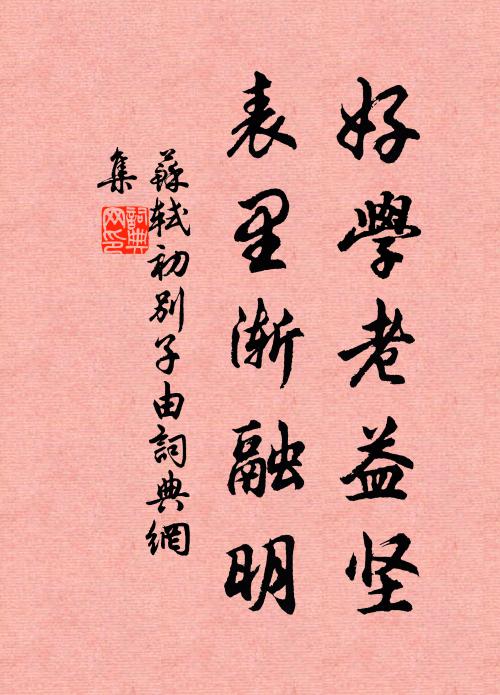 好學老益坚
表里渐融明
蘇軾初别子由詞典網
集
詞典
网印